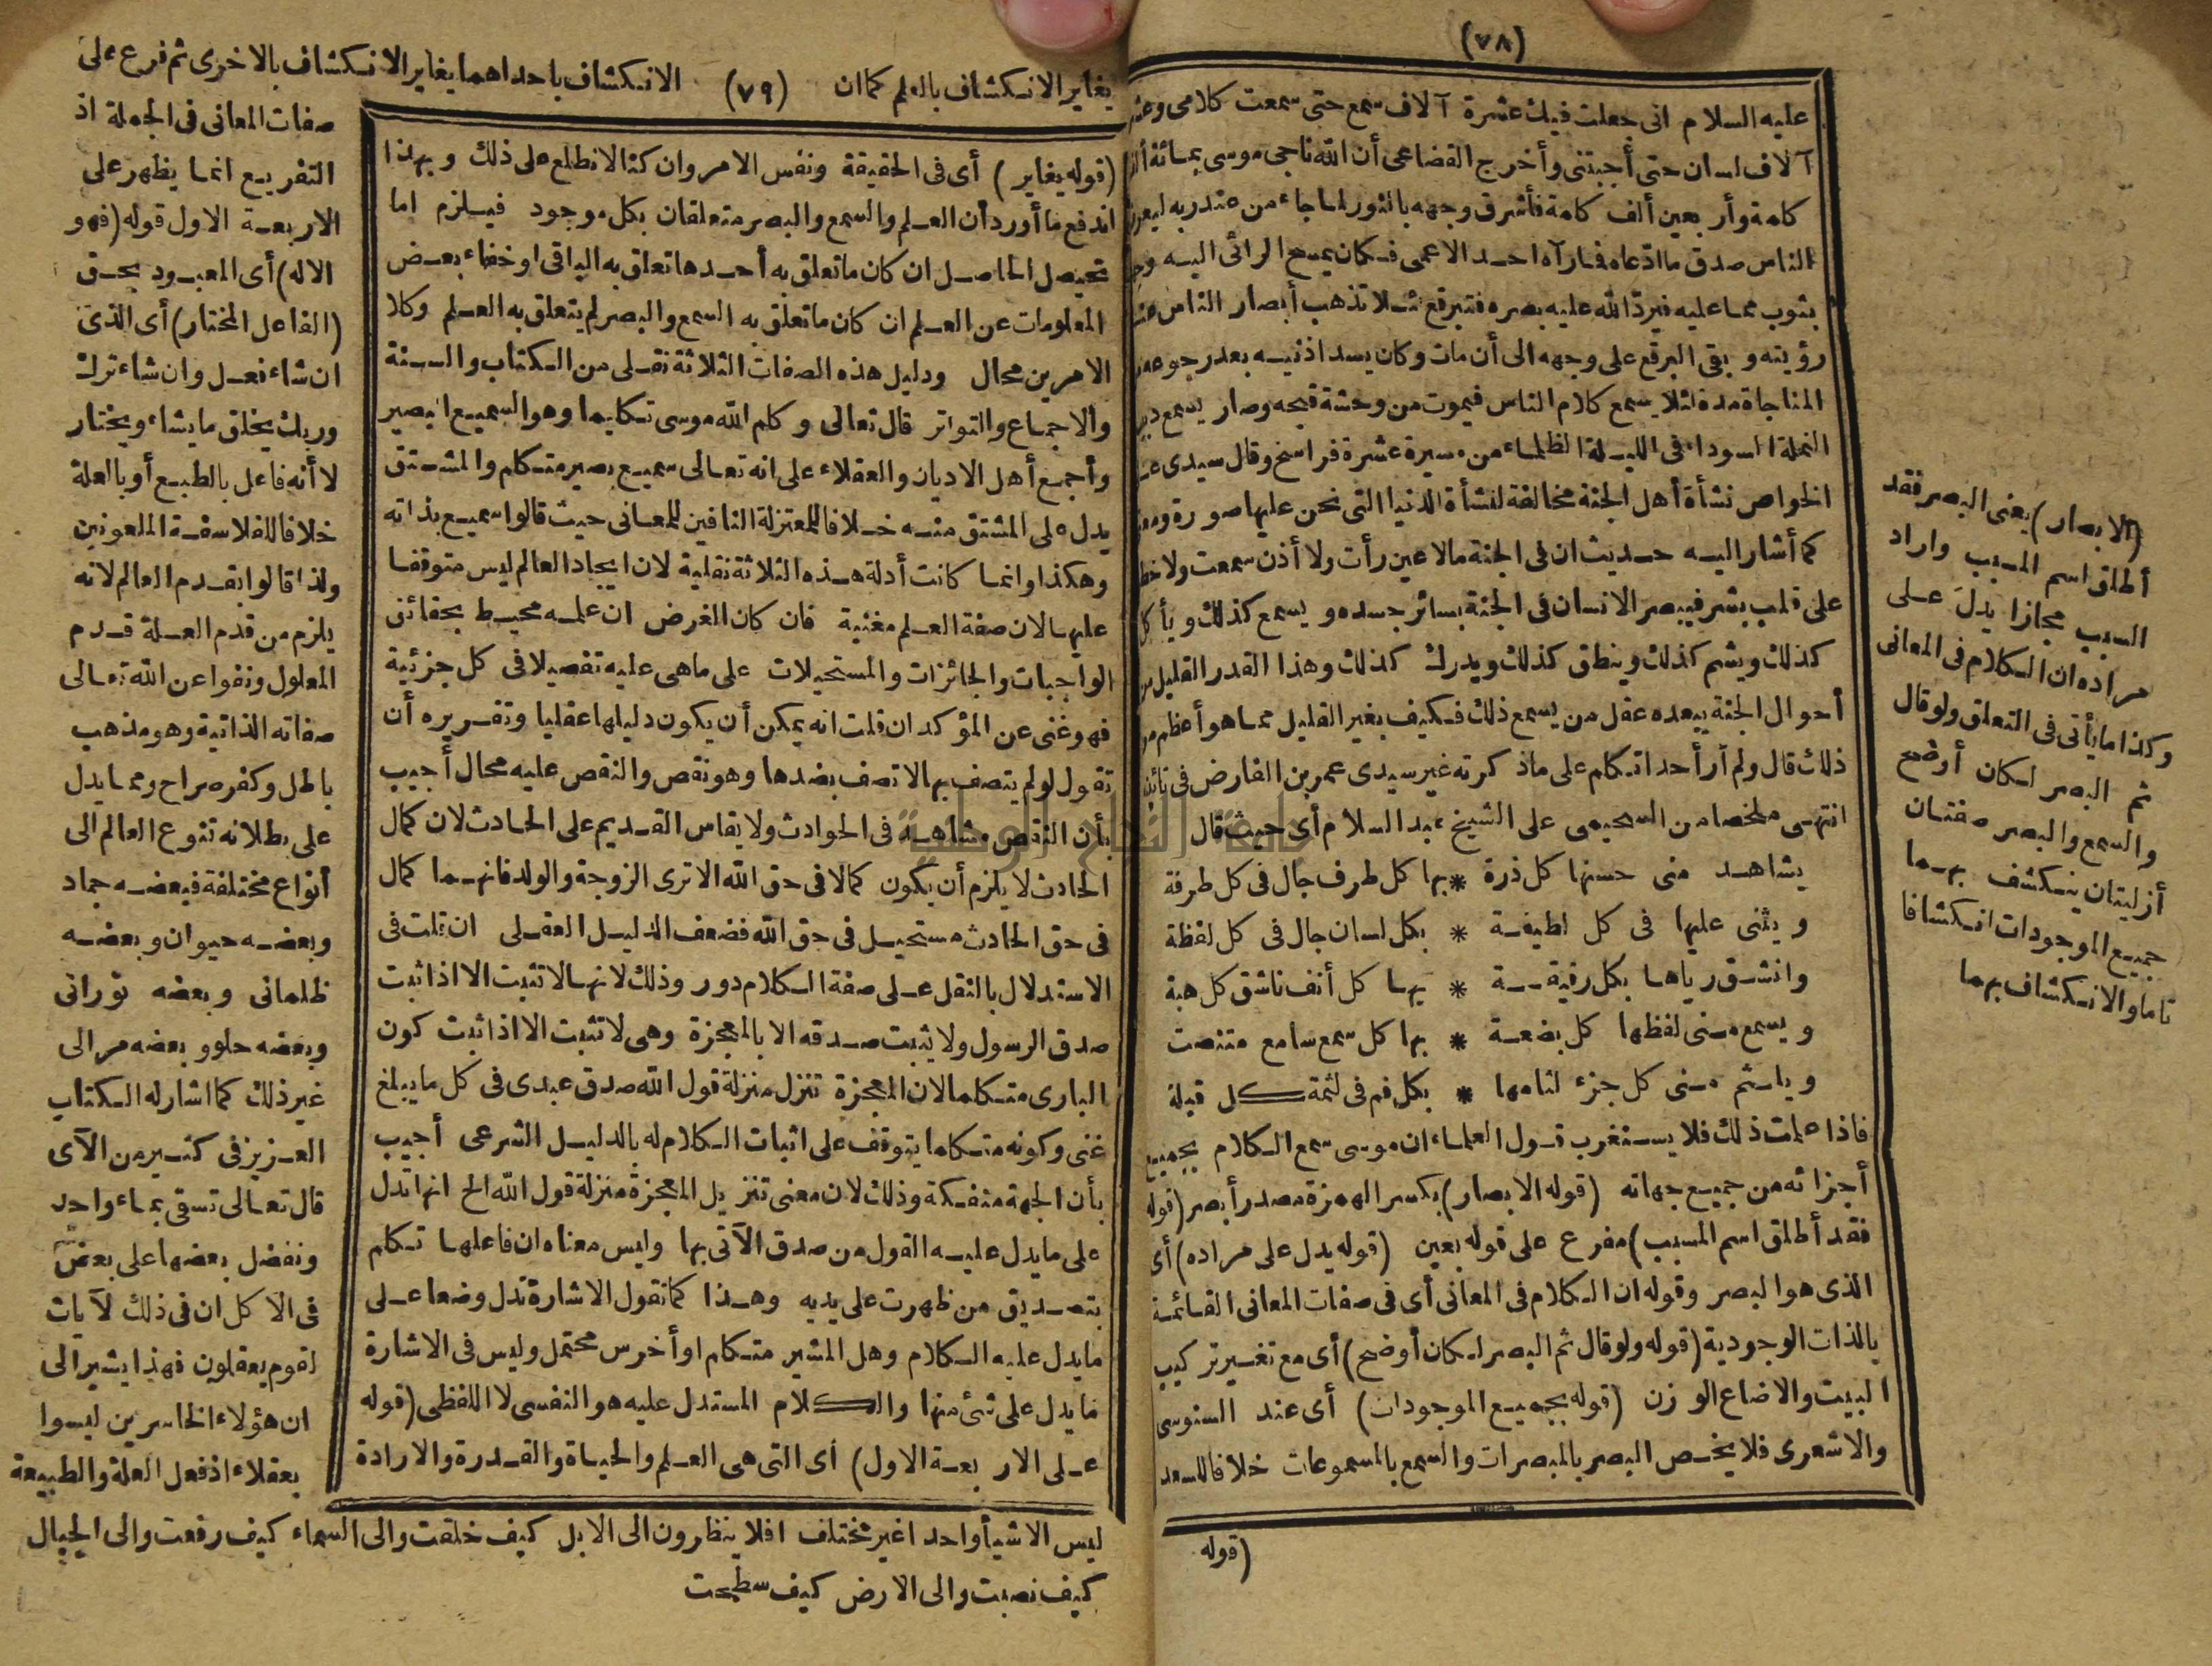 (٧٨)
عليه السلام انى جعلت فيك عشرة آلاف سمع حتى سمعت كلامى وعشرة
آلاف لسان حتى أجبتنى وأخرج القضاعى أن الله ناجى موسى بمائة ألف
كلمة وأربعين ألف كلمة فأشرق وجهه بالنور لما جاء من عند ربه ليعرف
الناس صدق ما ادعاه فما رآه احد الا عمى فكان يمسح الرائى اليه وجهه
بثوب مما عليه فيردّ الله عليه بصره فتبرقع لئلا تذهب أبصار الناس عند
رؤيته وبقى البرقع على وجهه الى أن مات وكان يسد اذنيه بعد رجوعه من
المناجاة مدة لئلا يسمع كلام الناس فيموت من وحشة قبحه وصار يسمع دبيب
النملة السوداء فى الليلة الظلماء من مسيرة عشرة فراسخ وقال سيدى على
الخواص نشأة أهل الجنة مخالفة لنشأة الدنيا التى نحن عليها صورة ومعنى
كما أشار اليه حديث ان فى الجنة مالا عين رأت ولا أذن سمعت ولا خطر
على قلب بشر فيبصر الانسان فى الجنة بسائر جسده ويسمع كذلك ويأكل
كذلك ويشم كذلك وينطق كذلك ويدرك كذلك وهذا القدر القليل من
أحوال الجنة يبعده عقل من يسمع ذلك فكيف بغير القليل مما هو أعظم من
ذلك قال ولم أر أحدا تكلم على ماذكرته غير سيدى عمر بن الفارض فى تائيته
انتهى ملخصا من السحيمى على الشيخ عبد السلام أى حيث قال
يشاهد منى حسنها كل ذرة * بها كل طرف جال فى كل طرفة
ويثنى عليها فى كل لطيفة * بكل لسان جال فى كل لفظة
وانشق رياها بكل رقيقة * بها كل أنف ناشق كل هبة
ويسمع منى لفظها كل بضعة * بها كل سمع سامع متنصت
ويلثم منى كل جزء لثامها * بكل فم فى لثمة كل قبلة
فاذا علمت ذلك فلا يستغرب قول العلماء ان موسى سمع الكلام بجميع
أجزائه من جميع جهاته (قوله الابصار) بكسر الهمزة مصدر أبصر (قوله
فقد أطلق اسم المسبب) مفرع على قوله بعين (قوله يدل على مراده) أى
الذى هو البصر وقوله ان الكلام فى المعانى أى فى صفات المعانى القائمة
بالذات الوجودية (قوله ولو قال ثم البصر لكان أوضح) أى مع تغيير تركيب
البيت والا ضاع الوزن (قوله بجميع الموجودات) أى عند السنوسى
والاشعرى فلا يخص البصر بالمبصرات والسمع بالمسموعات خلافا للسعد
(قوله
(الابصار) يعنى البصر فقد
أطلق اسم المسبب واراد
السبب مجازا يدل على
مراده ان الكلام فى المعانى
وكذا ما يأتى فى التعلق ولو قال
ثم البصر لكان أوضح
والسمع والبصر صفتان
أزليتان ينكشف بهما
جميع الموجودات انكشافا
تاما والانكشاف بهما
يغاير الانكشاف بالعلم كما ان (٧٩) الانكشاف باحداهما يغاير الانكشاف بالاخرى ثم فرع على
(قوله يغاير) أى فى الحقيقة ونفس الامر وان كنا لا نطلع على ذلك وبهذا
اندفع ما أورد أن العلم والسمع والبصر متعلقان بكل موجود فيلزم اما
تحصيل الحاصل ان كان ما تعلق به أحدها تعلق به الباقى او خفاء بعض
المعلومات عن العلم ان كان ما تعلق به السمع والبصر لم يتعلق به العلم وكلا
الامرين محال ودليل هذه الصفات الثلاثة نقلى من الكتاب والسنة
والاجماع والتواتر قال تعالى وكلم الله موسى تكليما وهو السميع البصير
وأجمع أهل الاديان والعقلاء على انه تعالى سميع بصير متكلم والمشتق
يدل على المشتق منه خلافا للمعتزلة النافين للمعانى حيث قالوا سميع بذاته
وهكذا وانما كانت أدلة هذه الثلاثة نقلية لان ايجاد العالم ليس متوقفا
عليها لان صفة العلم مغنية فان كان الغرض ان علمه محيط بحقائق
الواجبات والجائزات والمستحيلات على ماهى عليه تفصيلا فى كل جزئية
فهو غنى عن المؤكد ان قلت انه يمكن أن يكون دليلها عقليا وتقريره أن
تقول لو لم يتصف بها لاتصف بضدها وهو نقص والنقص عليه محال أجيب
بأن النقص مشاهد فى الحوادث ولا يقاس القديم على الحادث لان كمال
الحادث لا يلزم أن يكون كمالا فى حق الله الا ترى الزوجة والولد فانهما كمال
فى حق الحادث مستحيل فى حق الله فضعف الدليل العقلى ان قلت فى
الاستدلال بالنقل على صفة الكلام دور وذلك لانها لا تثبت الا اذا ثبت
صدق الرسول ولا يثبت صدقه الا بالمعجزة وهى لا تثبت الا اذا ثبت كون
البارى متكلما لان المعجزة تنزل منزلة قول الله صدق عبدى فى كل ما يبلغ
عنى وكونه متكلما يتوقف على اثبات الكلام له بالدليل الشرعى أجيب
بأن الجهة منفكة وذلك لان معنى تنزيل المعجزة منزلة قول الله الخ انها تدل
على ما يدل عليه القول من صدق الآتى بها وليس معناه ان فاعلها تكلم
بتصديق من ظهرت على يديه وهذا كما تقول الاشارة تدل وضعا على
ما يدل عليه الكلام وهل المشير متكلم او أخرس محتمل وليس فى الاشارة
ما يدل على شئ منها والكلام المستدل عليه هو النفسى لا اللفظى (قوله
على الاربعة الاول) أى التى هى العلم والحياة والقدرة والارادة
صفات المعانى فى الجملة اذ
التفريع انما يظهر على
الاربعة الاول قوله (فهو
الاله) أى المعبود بحق
(الفاعل المختار) أى الذى
ان شاء فعل وان شاء ترك
وربك يخلق ما يشاء ويختار
لا أنه فاعل بالطبع أو بالعلة
خلافا للفلاسفة الملعونين
ولذا قالوا بقدم العالم لانه
يلزم من قدم العلة قدم
المعلول ونفوا عن الله تعالى
صفاته الذاتية وهو مذهب
باطل وكفره صراح ومما يدل
على بطلانه تنوع العالم الى
أنواع مختلفة فبعضه جماد
وبعضه حيوان وبعضه
ظلمانى وبعضه نورانى
وبعضه حلو وبعضه مر الى
غير ذلك كما اشار له الكتاب
العزيز فى كثير من الآى
قال تعالى تسقى بماء واحد
ونفضل بعضها على بعض
فى الاكل ان فى ذلك لآيات
لقوم يعقلون فهذا يشير الى
ان هؤلاء الخاسرين ليسوا
بعقلاء اذ فعل العلة والطبيعة
ليس الا شيأ واحدا غير مختلف افلا ينظرون الى الابل كيف خلقت والى السماء كيف رفعت والى الجبال
كيف نصبت والى الارض كيف سطحت